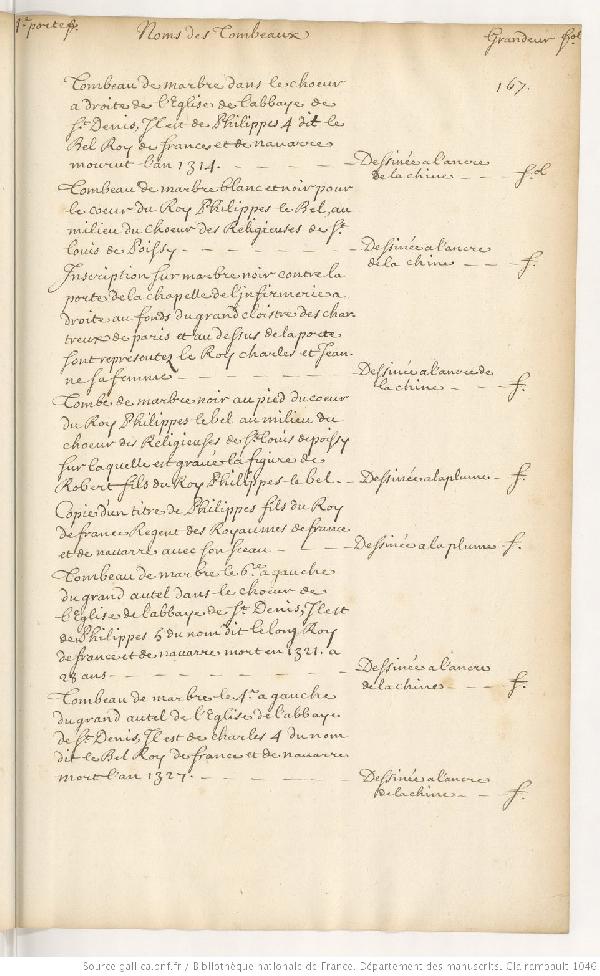 1er portef. Noms des Tombeaux Grandeur fol
167.
Tombeau de marbre dans le choeur
a droite de l'Eglise de l'abbaye de
St. Denis, Il est de Philippes 4 dit le
Bel Roy de france et de navarre
mourut l'an 1314. — — — — Dessinée a l'ancre
de la chine — — fol
Tombeau de marbre blanc et noir pour
le coeur du Roy Philippes le Bel, au
milieu du choeur des Religieuses de St.
Louis de Poissy — — — — Dessinée a l'ancre
de la chine — — — f.
Inscription sur marbre noir contre la
porte de la chapelle de l'infirmerie a
droite au fonds du grand cloistre des char
treux de paris et au dessus de la porte
sont representez le Roy charles et Jean-
ne sa femme — — — — Dessinée a l'ancre de
la chine — — f.
Tombe de marbre noir au pied du coeur
du Roy Philippes le bel au milieu du
choeur des Religieuses de St. Louis de poissy
sur laquelle est gravée la figure de
Robert fils du Roy Philippes le bel — Dessinée a la plume — f.
Copie d'un titre de Philippes fils du Roy
de france Regent des Royaumes de france
et de navarre avec son sceau — — Dessinée a la plume — f.
Tombeau de marbre le 6e. a gauche
du grand autel dans le choeur de
l'Eglise de l'abbaye de St. Denis, Il est
de Philippes 5 du nom dit le long Roy
de france et de navarre mort en 1321. a
28 ans — — — — Dessinée a l'ancre
de la chine — — — f.
Tombeau de marbre le 4e. a gauche
du grand autel de l'Eglise de l'abbaye
de St. Denis, Il est de charles 4 du nom
dit le Bel Roy de france et de navarre
mort l'an 1327. — — — — Dessinée a l'ancre
de la chine — — f.
Source gallica.bnf.fr / Bibliothèque nationale de France. Département des manuscrits. Clairambault 1046